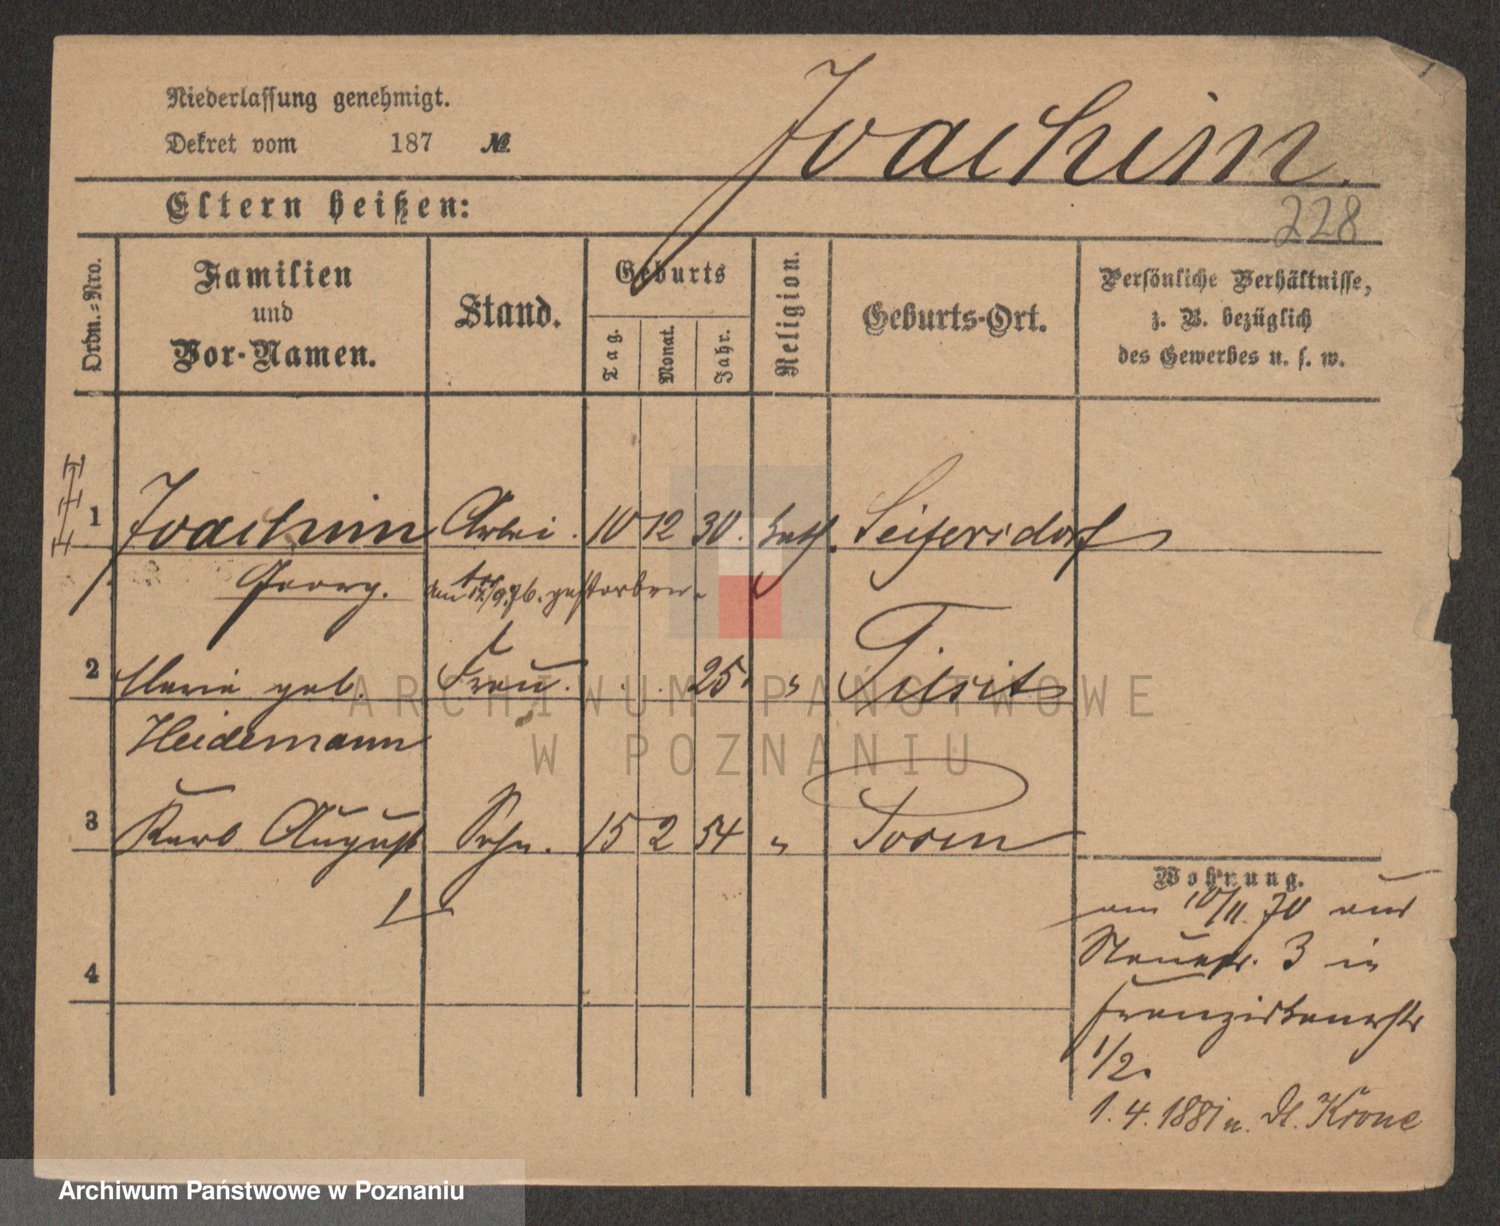 Niederlassung genehmigt.
Dekret vom 187 №
Joachim.
Eltern heißen:
228
Ordn.-Nro.
Familien
und
Vor-Namen.
Stand.
Geburts
Tag.
Monat.
Jahr.
Religion.
Geburts-Ort.
Persönliche Verhältnisse,
z. B. bezüglich
des Gewerbes u. s. w.
1 Joachim Arbei. 10 12 30. kath. Seifersdorf
Georg. am 12/9.76. gestorben.
2 Marie geb. Frau. 25. " Tilsit
Heidemann
3 Karl August Sohn. 15 2 54 " Posen
4
Wohnung.
am 10/11. 70 aus
3 in
Franziskanerstr
1/2.
1. 4. 1881 n. Dt. Krone
ARCHIWUM PAŃSTWOWE
W POZNANIU
Archiwum Państwowe w Poznaniu